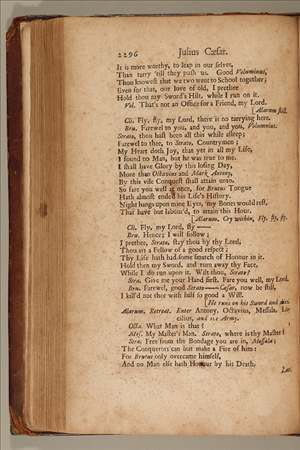 2296 Julius Cæsar.
It is more worthy, to leap in our selves,
Than tarry 'till they push us. Good Voluminus,
Thou knowest that we two went to School together;
Even for that, our love of old, I prethee
Hold thou my Sword's Hilt, while I run on it.
Vol. That's not an Office for a Friend, my Lord.
[Alarum still.
Cli. Fly, fly, my Lord, there is no tarrying here.
Bru. Farewel to you, and you, and you, Volumnius.
Strato, thou hast been all this while asleep;
Farewel to thee, to Strato, Countrymen:
My Heart doth Joy, that yet in all my Life,
I found no Man, but he was true to me.
I shall have Glory by this losing Day,
More than Octavius and Mark Antony,
By this vile Conquest shall attain unto.
So fare you well at once, for Brutus Tongue
Hath almost ended his Life's History.
Night hangs upon mine Eyes, my Bones would rest,
That have but labour'd, to attain this Hour.
[Alarum. Cry within, Fly, fly, fly.
Cli. Fly, my Lord, fly —
Bru. Hence; I will follow;
I prethee, Strato, stay thou by thy Lord,
Thou art a Fellow of a good respect;
Thy Life hath had some smatch of Honour in it.
Hold then my Sword, and turn away thy Face,
While I do run upon it. Wilt thou, Strato?
Stra. Give me your Hand first. Fare you well, my Lord.
Bru. Farewel, good Strato — Cæsar, now be still,
I kill'd not thee with half so good a Will.
[He runs on his Sword and dies.
Alarum. Retreat. Enter Antony, Octavius, Messala, Lu-
cilius, and the Army.
Octa. What Man is that?
Mes. My Master's Man. Strato, where is thy Master?
Stra. Free from the Bondage you are in, Messala;
The Conquerors can but make a Fire of him:
For Brutus only overcame himself,
And no Man else hath Honour by his Death.
Luc.